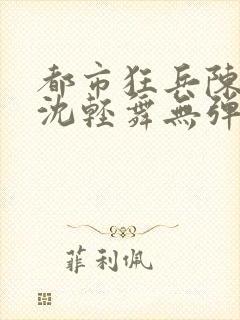 都市狂兵陳
沈輕舞無彈
菲利佩